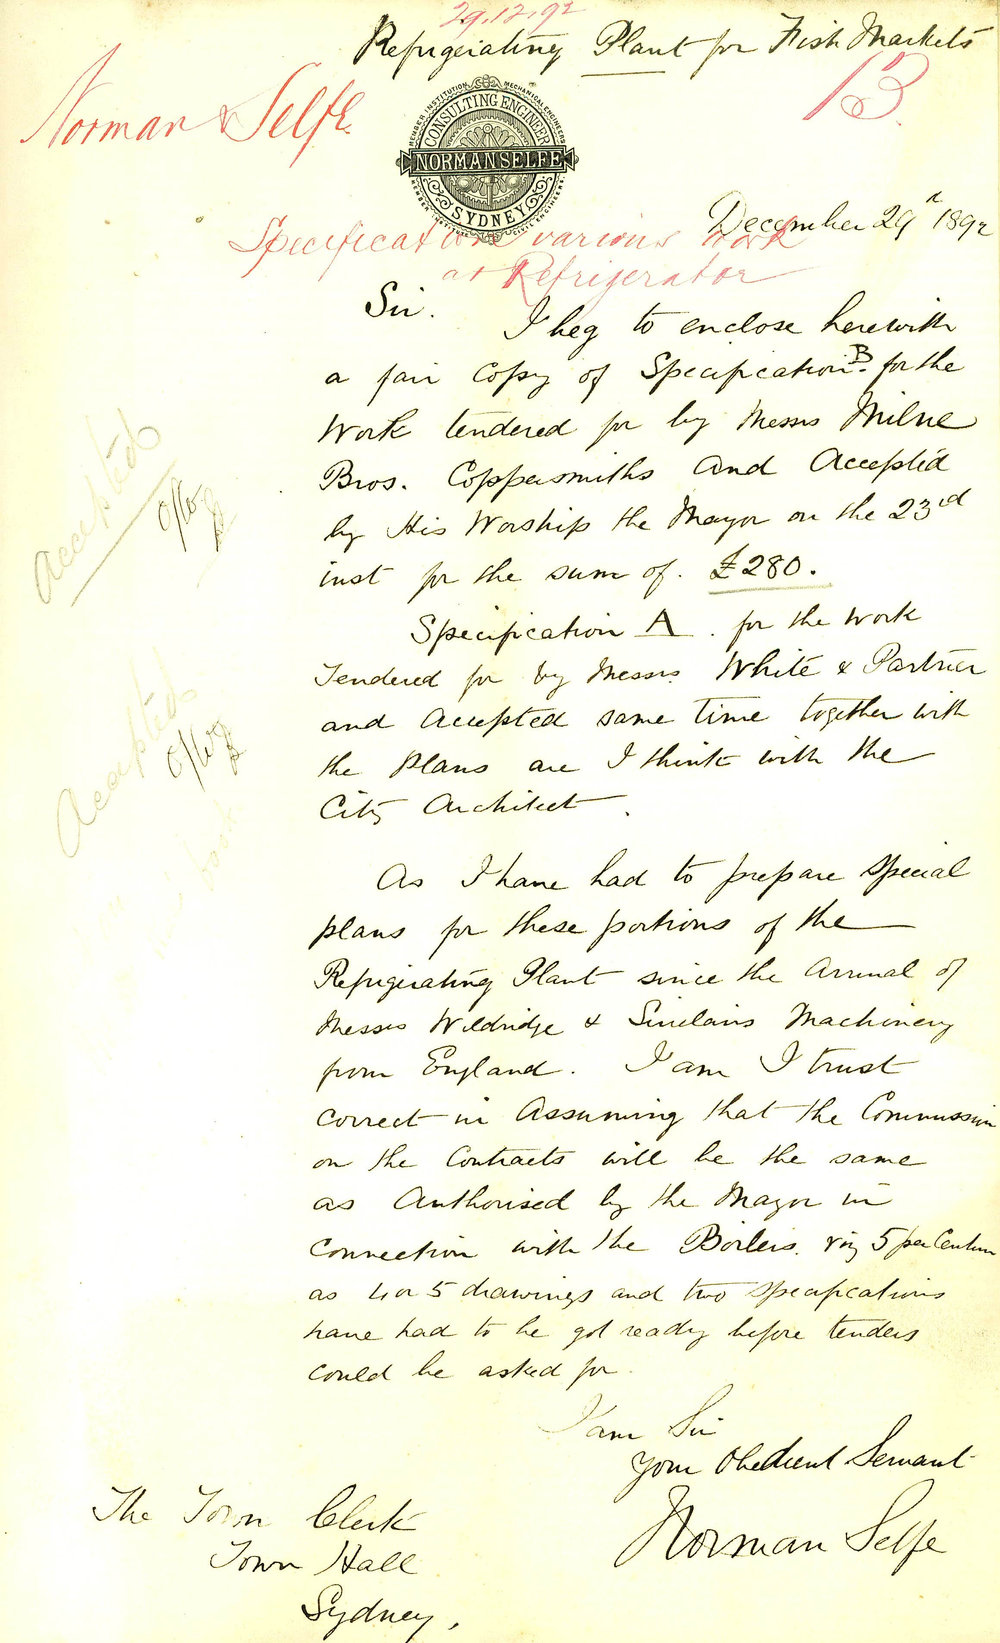 29.12.92
Refrigeiating Plant for Fish Markets
Norman Selfe
B.
MEMBER INSTITUTION MECHANICAL ENGINEERS
CONSULTING ENGINEER
NORMAN SELFE
SYDNEY
December 29th 1892
Specification various work
at Refrigerator
Sir.
I beg to enclose herewith
a fair Copy of Specification B. for the
Work tendered for by Messrs Milne
Bros. Coppersmiths and Accepted
by His Worship the Mayor on the 23rd
inst for the sum of. £280.
Specification A. for the work
Tendered for by Messrs. White & Partner
and Accepted same time together with
the Plans are I think with the
City Architect.
As I have had to prepare special
plans for these portions of the
Refrigeiating Plant since the Arrival of
Messrs Wildridge & Sinclairs Machinery
from England. I am I trust
correct in Assuming that the Commission
on the Contracts will be the same
as Authorised by the Mayor in
Connection with the Boilers. viz 5 per Centum
as 4 or 5 drawings and two specifications
have had to be got ready before tenders
could be asked for.
I am Sir
Your Obedient Servant
Norman Selfe
The Town Clerk
Town Hall
Sydney.
Accepted
Accepted